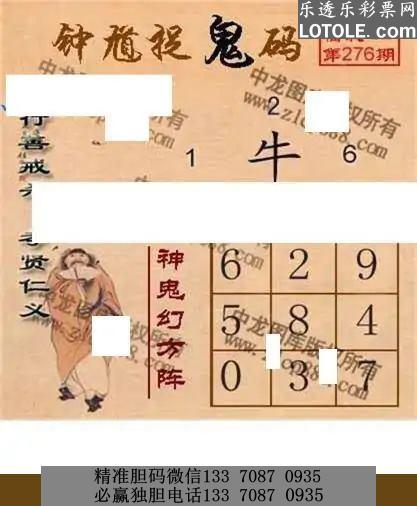 乐透乐彩票网
LOTOLE.COM
钟馗捉鬼码
第276期
中龙图库版权所有
2
1 牛 6
行善戒
孝贤仁义
神鬼幻方阵
6 2 9
5 8 4
0 3 7
精准胆码微信133 7087 0935
必赢独胆电话133 7087 0935